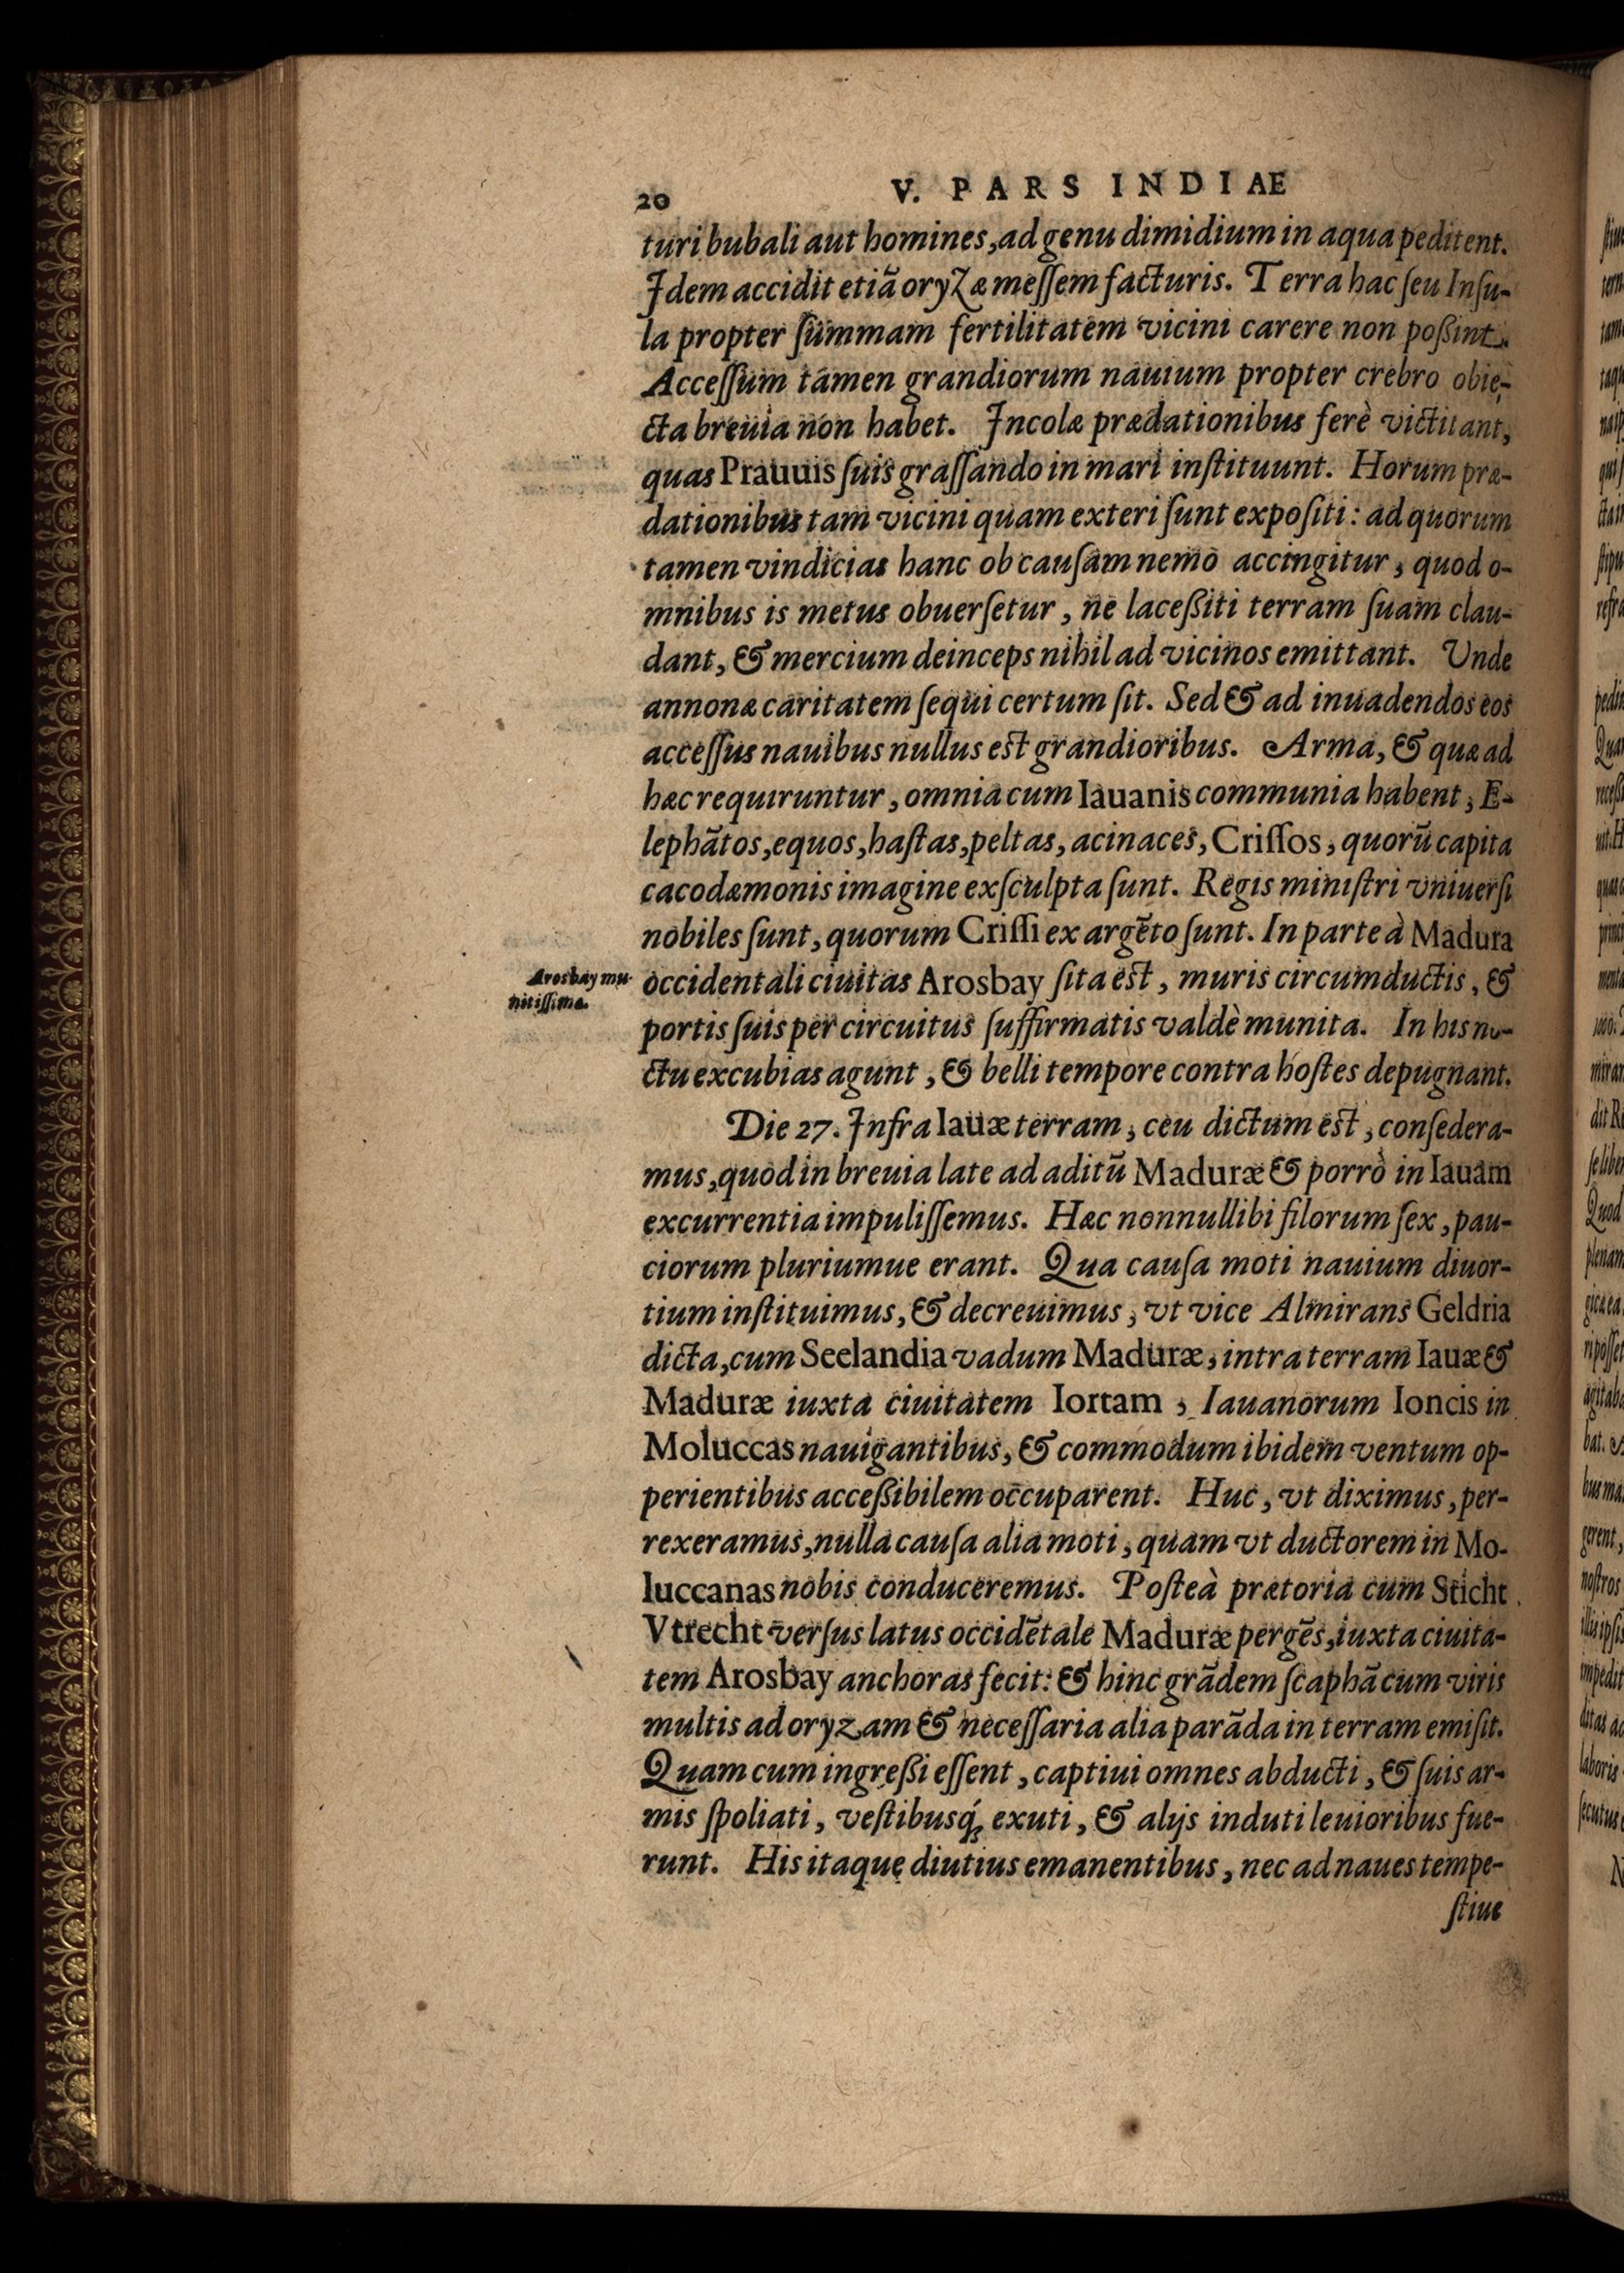 20
V. PARS INDIAE
turi bubali aut homines, ad genu dimidium in aqua peditent.
Idem accidit etiã oryzæ meſſem facturis. Terra hac ſeu Inſu-
la propter ſummam fertilitatem vicini carere non poßint.
Acceſſum tamen grandiorum nauium propter crebro obie-
cta breuia non habet. Incolæ prædationibus ferè victitant,
quas Prauuis ſuis graſſando in mari inſtituunt. Horum præ-
dationibus tam vicini quam exteri ſunt expoſiti: ad quorum
tamen vindicias hanc ob cauſam nemo accingitur, quod o-
mnibus is metus obuerſetur, ne laceßiti terram ſuam clau-
dant, & mercium deinceps nihil ad vicinos emittant. Unde
annonæ caritatem ſequi certum ſit. Sed & ad inuadendos eos
acceſſus nauibus nullus est grandioribus. Arma, & quæ ad
hæc requiruntur, omnia cum Iauanis communia habent, E-
lephãtos, equos, haſtas, peltas, acinaces, Criſſos, quorũ capita
cacodæmonis imagine exſculpta ſunt. Regis miniſtri vniuerſi
nobiles ſunt, quorum Criſſi ex argẽto ſunt. In parte à Madura
Arosbay mu-
nitiſſima.
occidentali ciuitas Arosbay ſita est, muris circumductis, &
portis ſuis per circuitus ſuffirmatis valdè munita. In his no-
ctu excubias agunt, & belli tempore contra hoſtes depugnant.
Die 27. Infra Iauæ terram, ceu dictum est, conſedera-
mus, quod in breuia late ad aditũ Maduræ & porrò in Iauam
excurrentia impuliſſemus. Hæc nonnullibi filorum ſex, pau-
ciorum pluriumue erant. Qua cauſa moti nauium diuor-
tium inſtituimus, & decreuimus, vt vice Almirans Geldria
dicta, cum Seelandia vadum Maduræ, intra terram Iauæ &
Maduræ iuxta ciuitatem Iortam, Iauanorum Ioncis in
Moluccas nauigantibus, & commodum ibidem ventum op-
perientibus acceßibilem occuparent. Huc, vt diximus, per-
rexeramus, nulla cauſa alia moti, quam vt ductorem in Mo-
luccanas nobis conduceremus. Poſteà prætoria cum Sticht
Vtrecht verſus latus occidẽtale Maduræ pergẽs, iuxta ciuita-
tem Arosbay anchoras fecit: & hinc grãdem ſcaphã cum viris
multis ad oryzam & neceſſaria alia parãda in terram emiſit.
Quam cum ingreßi eſſent, captiui omnes abducti, & ſuis ar-
mis ſpoliati, veſtibusq́; exuti, & alijs induti leuioribus fue-
runt. His itaque diutius emanentibus, nec ad naues tempe-
ſtiue